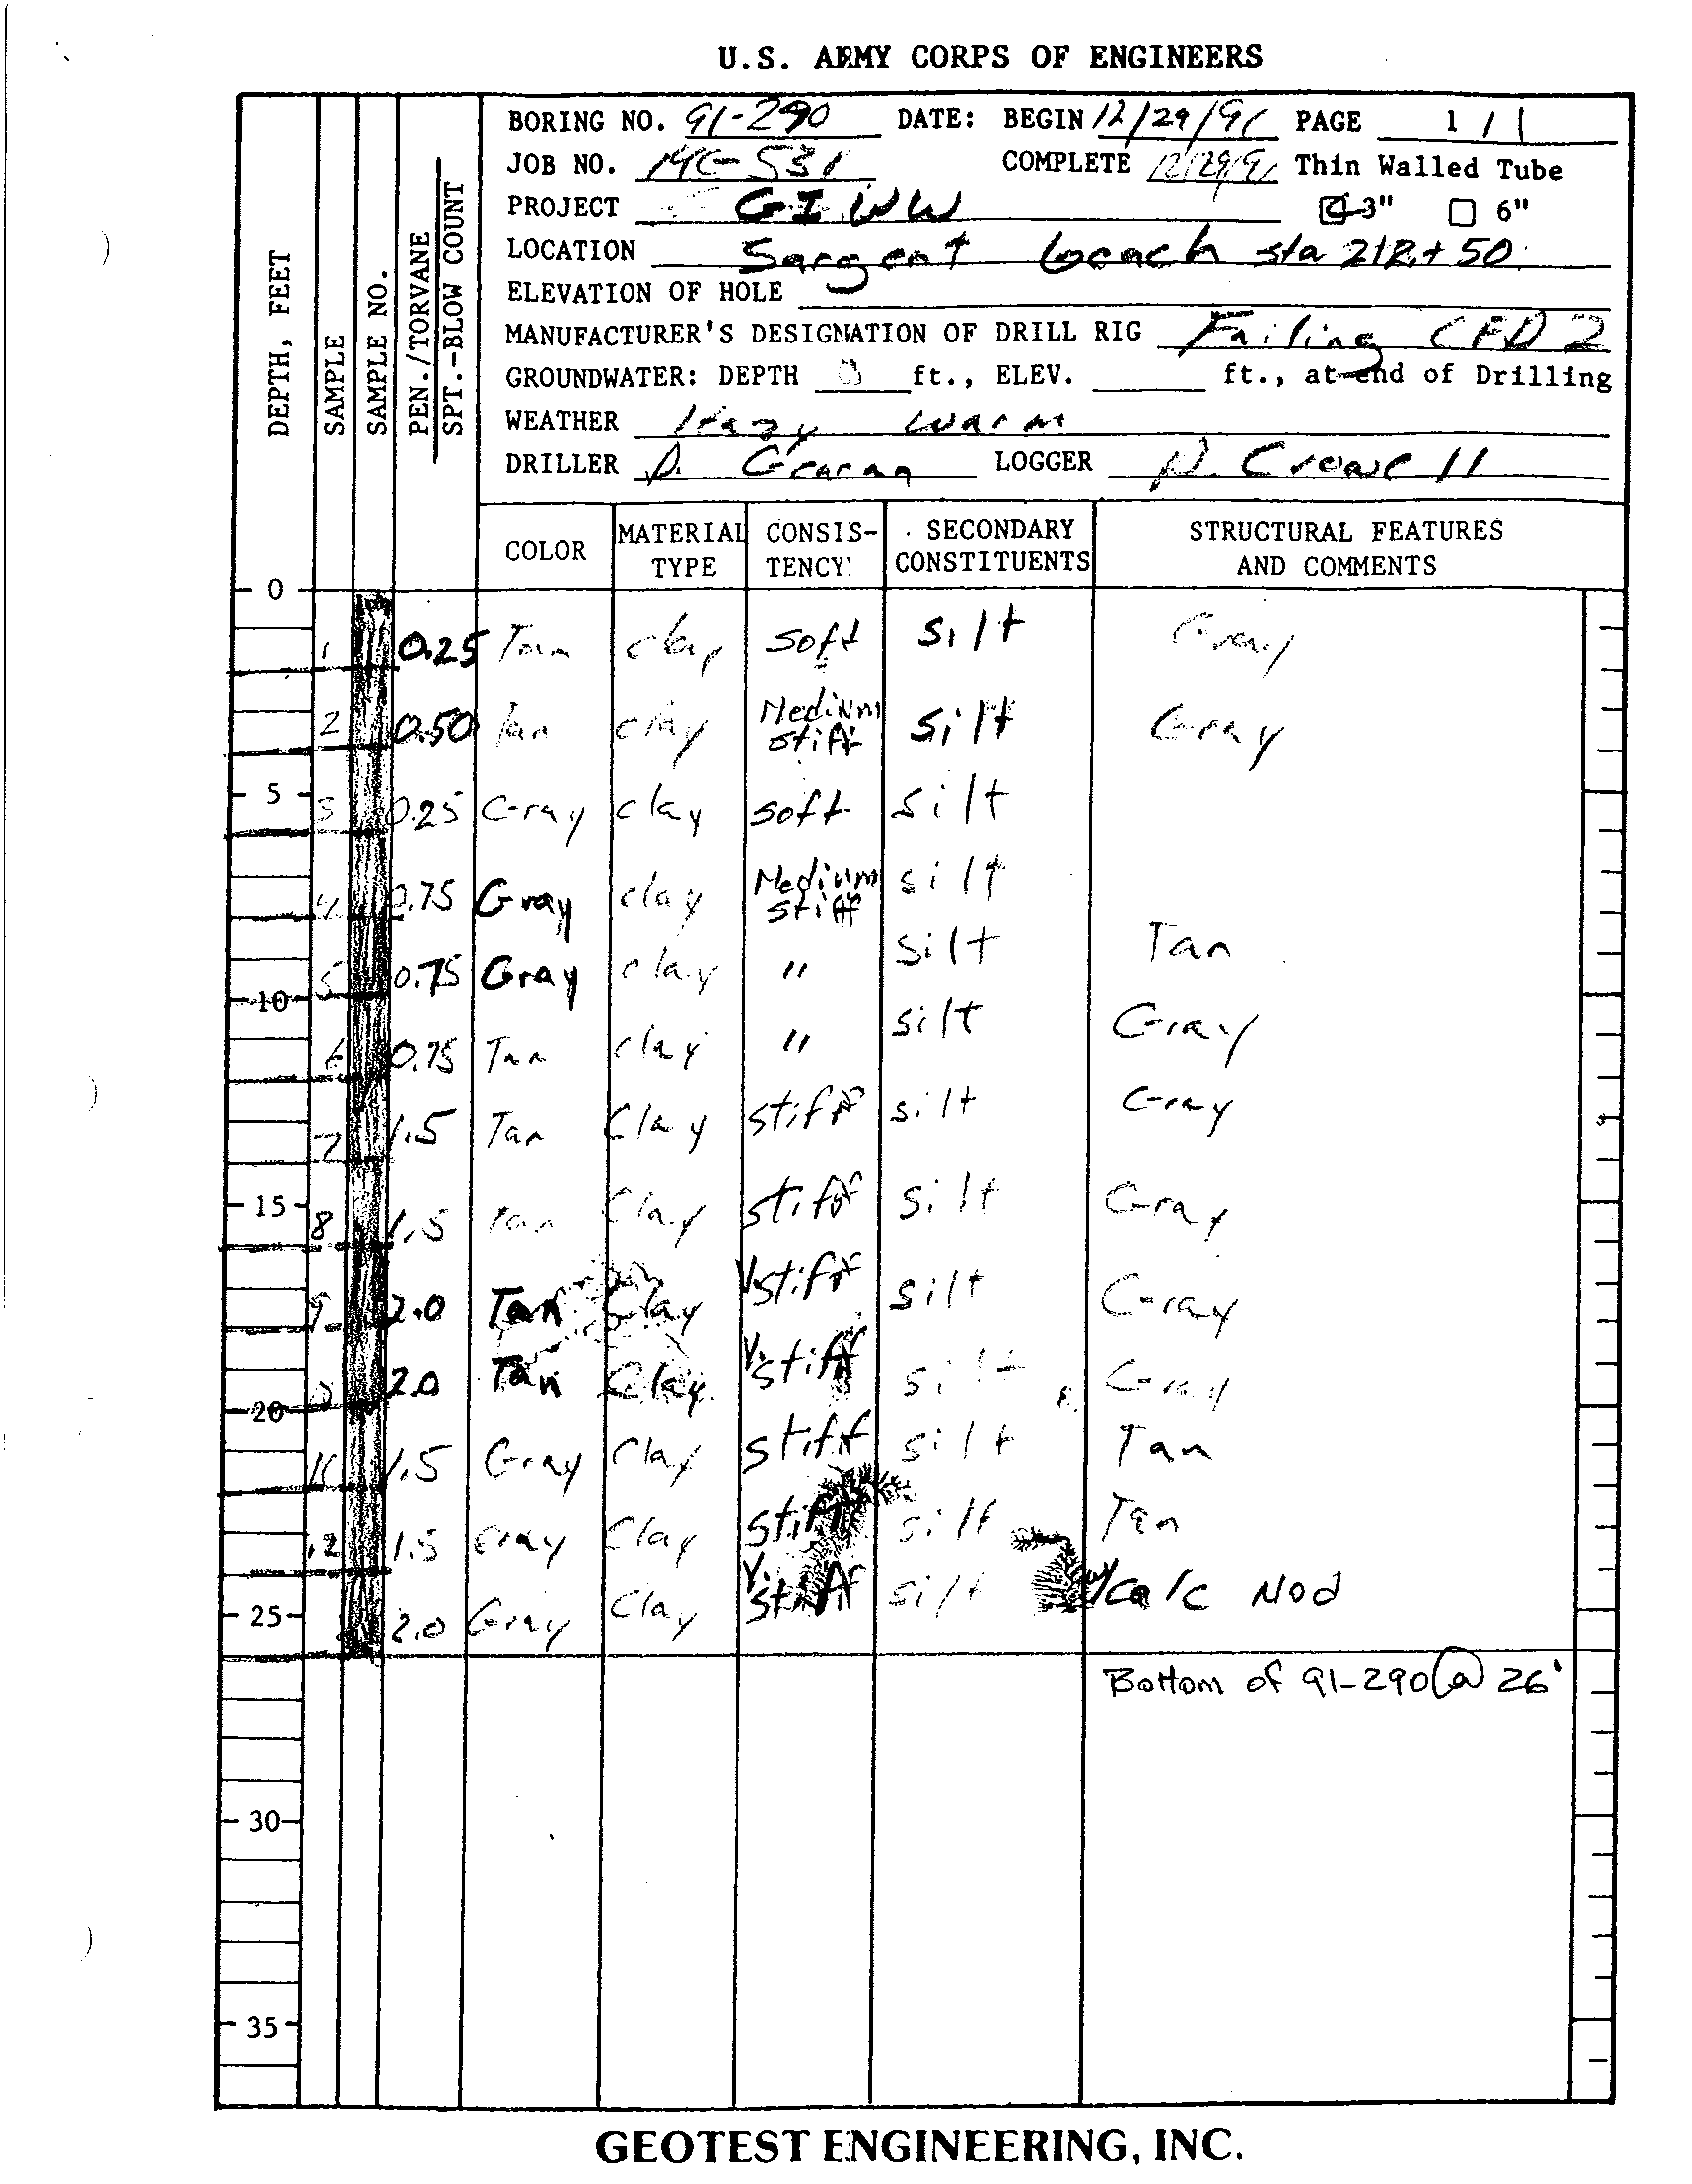 U.S. ARMY CORPS OF ENGINEERS
BORING NO. 91-290 DATE: BEGIN 12/29/91 PAGE 1 / 1
JOB NO. COMPLETE 12/29/91 Thin Walled Tube
PROJECT GIWW 3" 6"
LOCATION Sargent beach sta 212+50
ELEVATION OF HOLE
MANUFACTURER'S DESIGNATION OF DRILL RIG Failing CFD 2
GROUNDWATER: DEPTH ft., ELEV. ft., at end of Drilling
WEATHER Hazy warm
DRILLER D. LOGGER N. Crowell
DEPTH, FEET
SAMPLE
SAMPLE NO.
PEN./TORVANE
SPT.-BLOW COUNT
COLOR MATERIAL TYPE CONSIS-TENCY SECONDARY CONSTITUENTS STRUCTURAL FEATURES AND COMMENTS
0
1 0.25 Tan clay soft silt Gray
2 0.50 Tan clay Medium stiff silt Gray
5 3 0.25 Gray clay soft silt
4 0.75 Gray clay Medium stiff silt
10 5 0.75 Gray clay " silt Tan
6 0.75 Tan clay " silt Gray
7 1.5 Tan Clay stiff silt Gray
15 8 1.5 Tan Clay stiff silt Gray
9 2.0 Tan Clay V stiff silt Gray
20 2.0 Tan Clay V. stiff silt Gray
11 1.5 Gray Clay stiff silt Tan
12 1.5 Gray Clay stiff silt Tan
25 2.0 Gray Clay V. stiff silt w/calc Nod
Bottom of 91-290 @ 26'
30
35
GEOTEST ENGINEERING, INC.